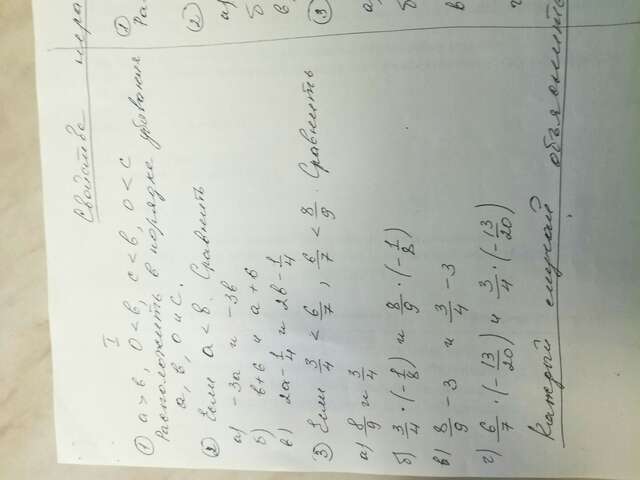 Свойства нера
I
① a > b, 0 < b, c < b, 0 < c
Расположить в порядке убывания
a, b, 0 и c.
② Если a < b. Сравнить
а) -3a и -3b
б) b+6 и a+6
в) 2a - 1/4 и 2b - 1/4
③ Если 3/4 < 6/7, 6/7 < 8/9. Сравнить
а) 8/9 и 3/4
б) 3/4 · (-1/8) и 8/9 · (-1/8)
в) 8/9 - 3 и 3/4 - 3
г) 6/7 · (-13/20) и 3/4 · (-13/20)
Каждый случай объяснить
①
Ра
②
а)
б
в
③
а
б
в
г